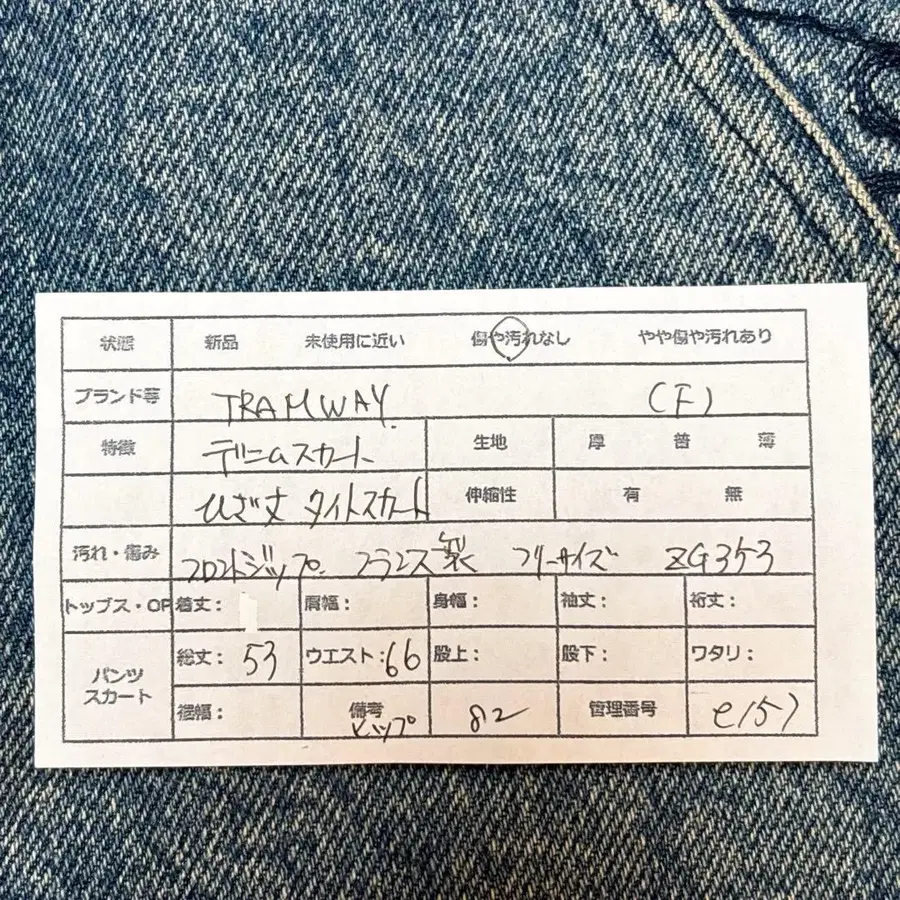 状態 新品 未使用に近い 傷や汚れなし やや傷や汚れあり
ブランド等 TRAMWAY. (F)
特徴 デニムスカート 生地 厚 普 薄
ひざ丈 タイトスカート 伸縮性 有 無
汚れ・傷み フロントジップ フランス製 フリーサイズ ZG353
トップス・OP 着丈: 肩幅: 身幅: 袖丈: 裄丈:
パンツ スカート 総丈: 53 ウエスト: 66 股上: 股下: ワタリ:
裾幅: 備考 ヒップ 82 管理番号 e157